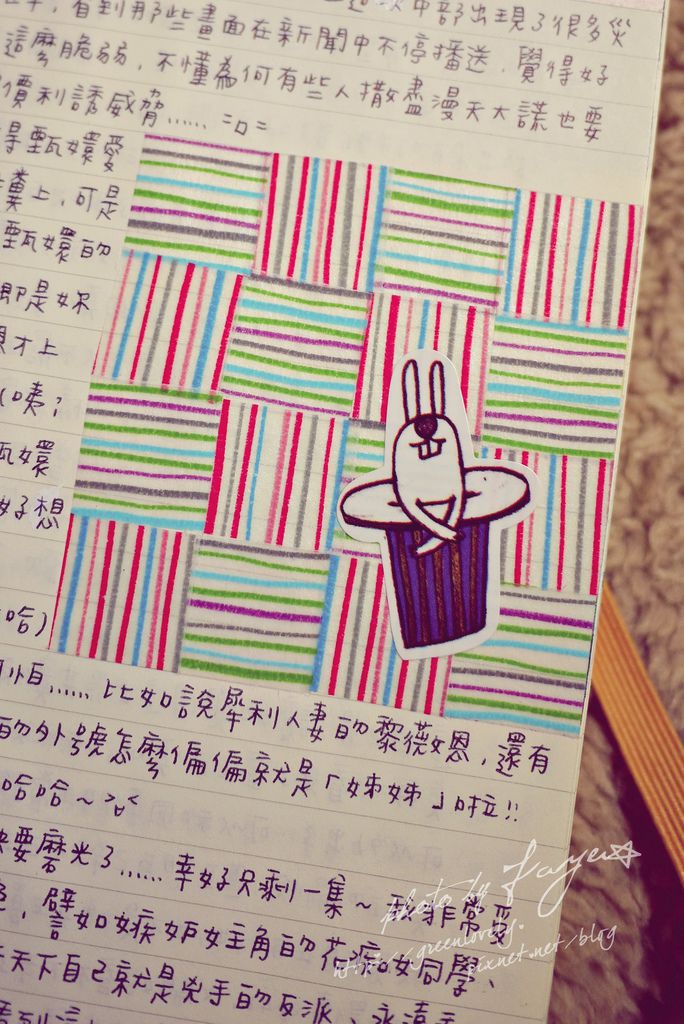 看到那些畫面在新聞中不停播送，覺得好
這麼脆弱，不懂為何有些人撒盡漫天大謊也要
價利誘威脅…… =口=
得甄嬛愛
糞上，可是
甄嬛的
即是妳
才上
咦；
甄嬛
好想
哈)
怕…… 比如說犀利人妻的黎薇恩，還有
的外號怎麼偏偏就是「姊姊」啦!!
哈哈~
要磨光了…… 幸好只剩一集~
譬如嫉妒女主角的花痴女同學、
天下自己就是兇手的反派、永遠
photo by Faye☆
http://greenlovely.
pixnet.net/blog